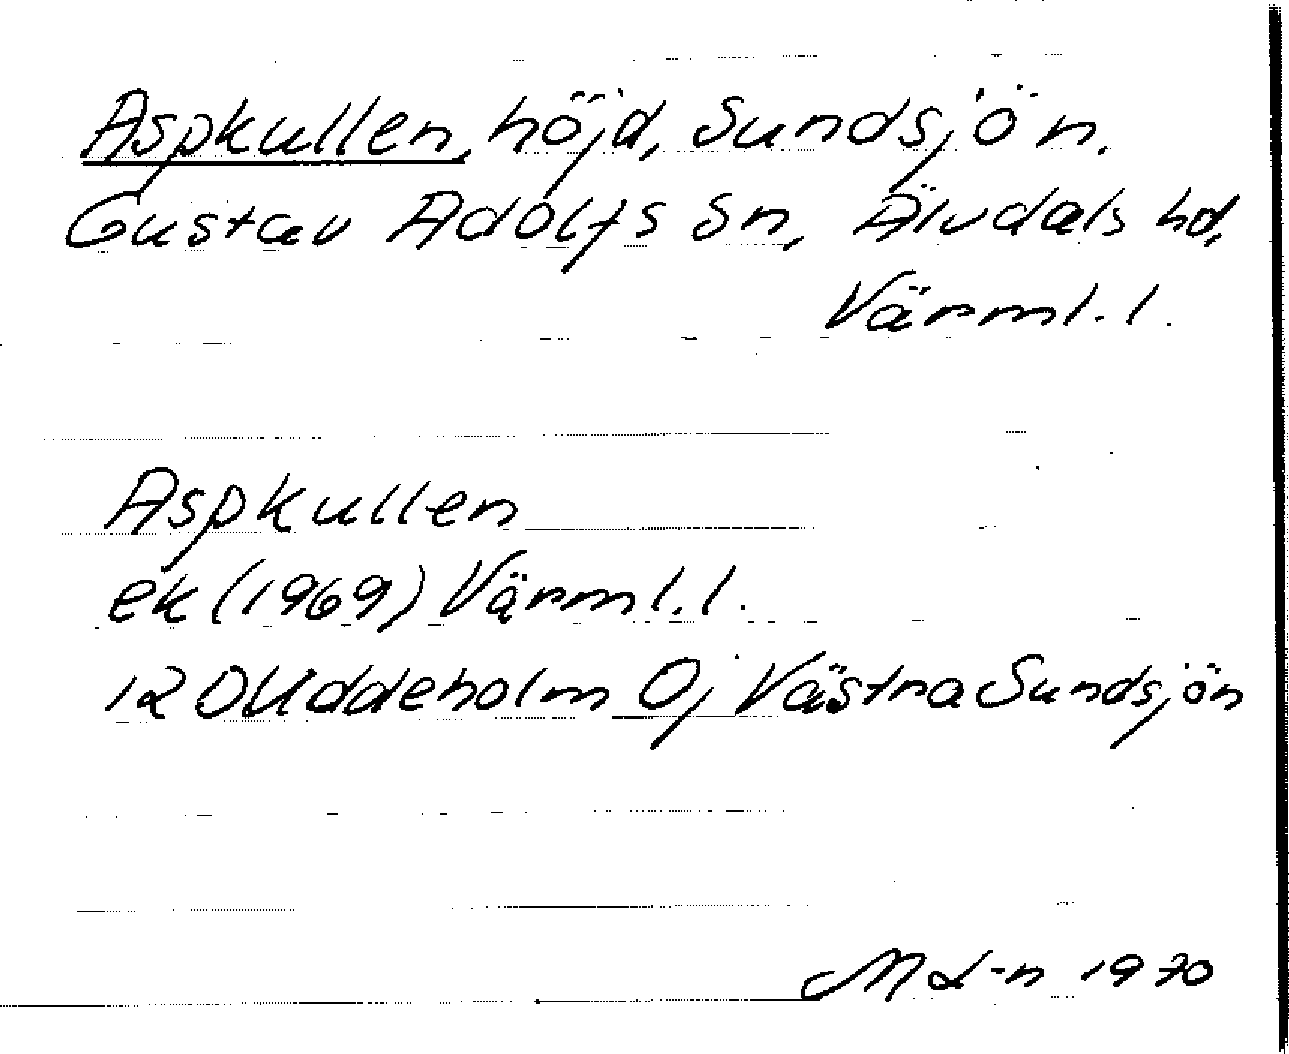 Aspkullen, höjd, Sundsjön.
Gustav Adolfs sn, Älvdals hd,
Värml. l.
Aspkullen
ek (1969) Värml. l.
12 D Uddeholm 0j Västra Sundsjön
M L-n 1970